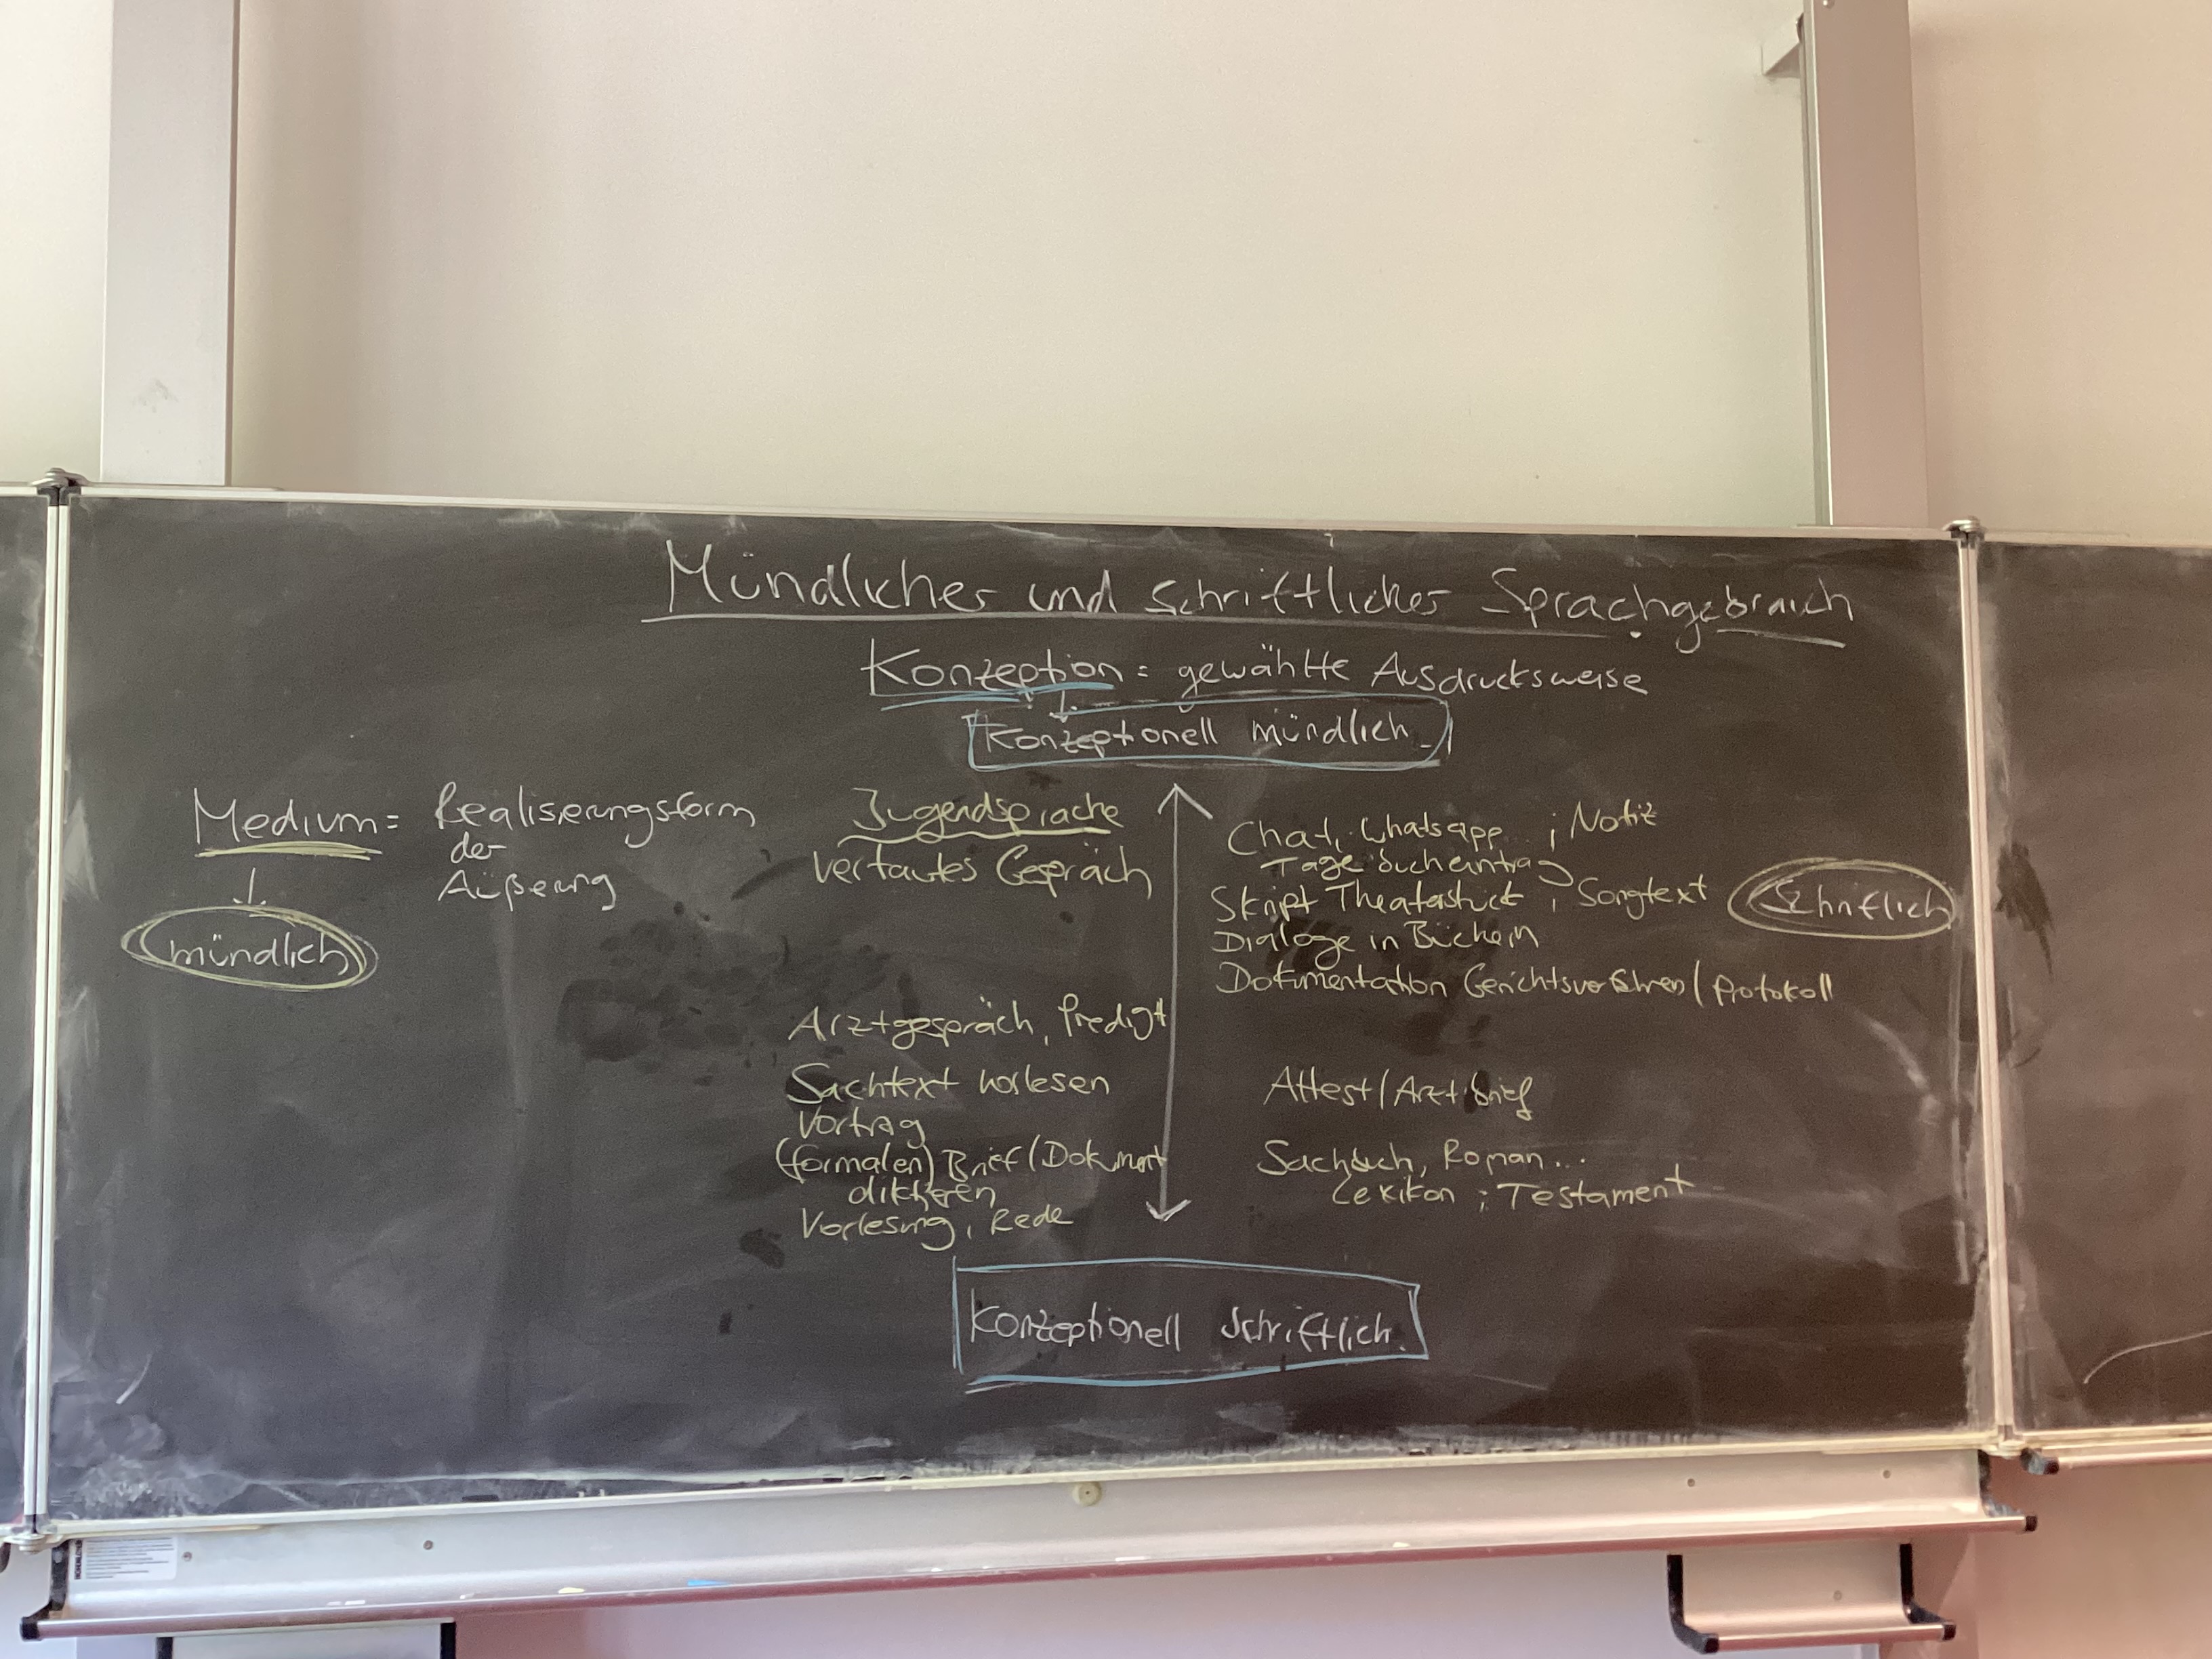 Mündlicher und schriftlicher Sprachgebrauch
Konzeption = gewählte Ausdrucksweise
Konzeptionell mündlich
Medium = Realisierungsform
der
Äußerung
mündlich
Jugendsprache
vertautes Gespräch
Arztgespräch, Predigt
Sachtext vorlesen
Vortrag
(formalen) Brief/Dokument
diktieren
Vorlesung, Rede
Chat, Whatsapp... ; Notiz
Tagebucheintrag
Skript Theaterstück ; Songtext
Dialoge in Büchern
Dokumentation Gerichtsverfahren / Protokoll
Attest/Arztbrief
Sachbuch, Roman...
Lexikon ; Testament
Schriftlich
Konzeptionell schriftlich.